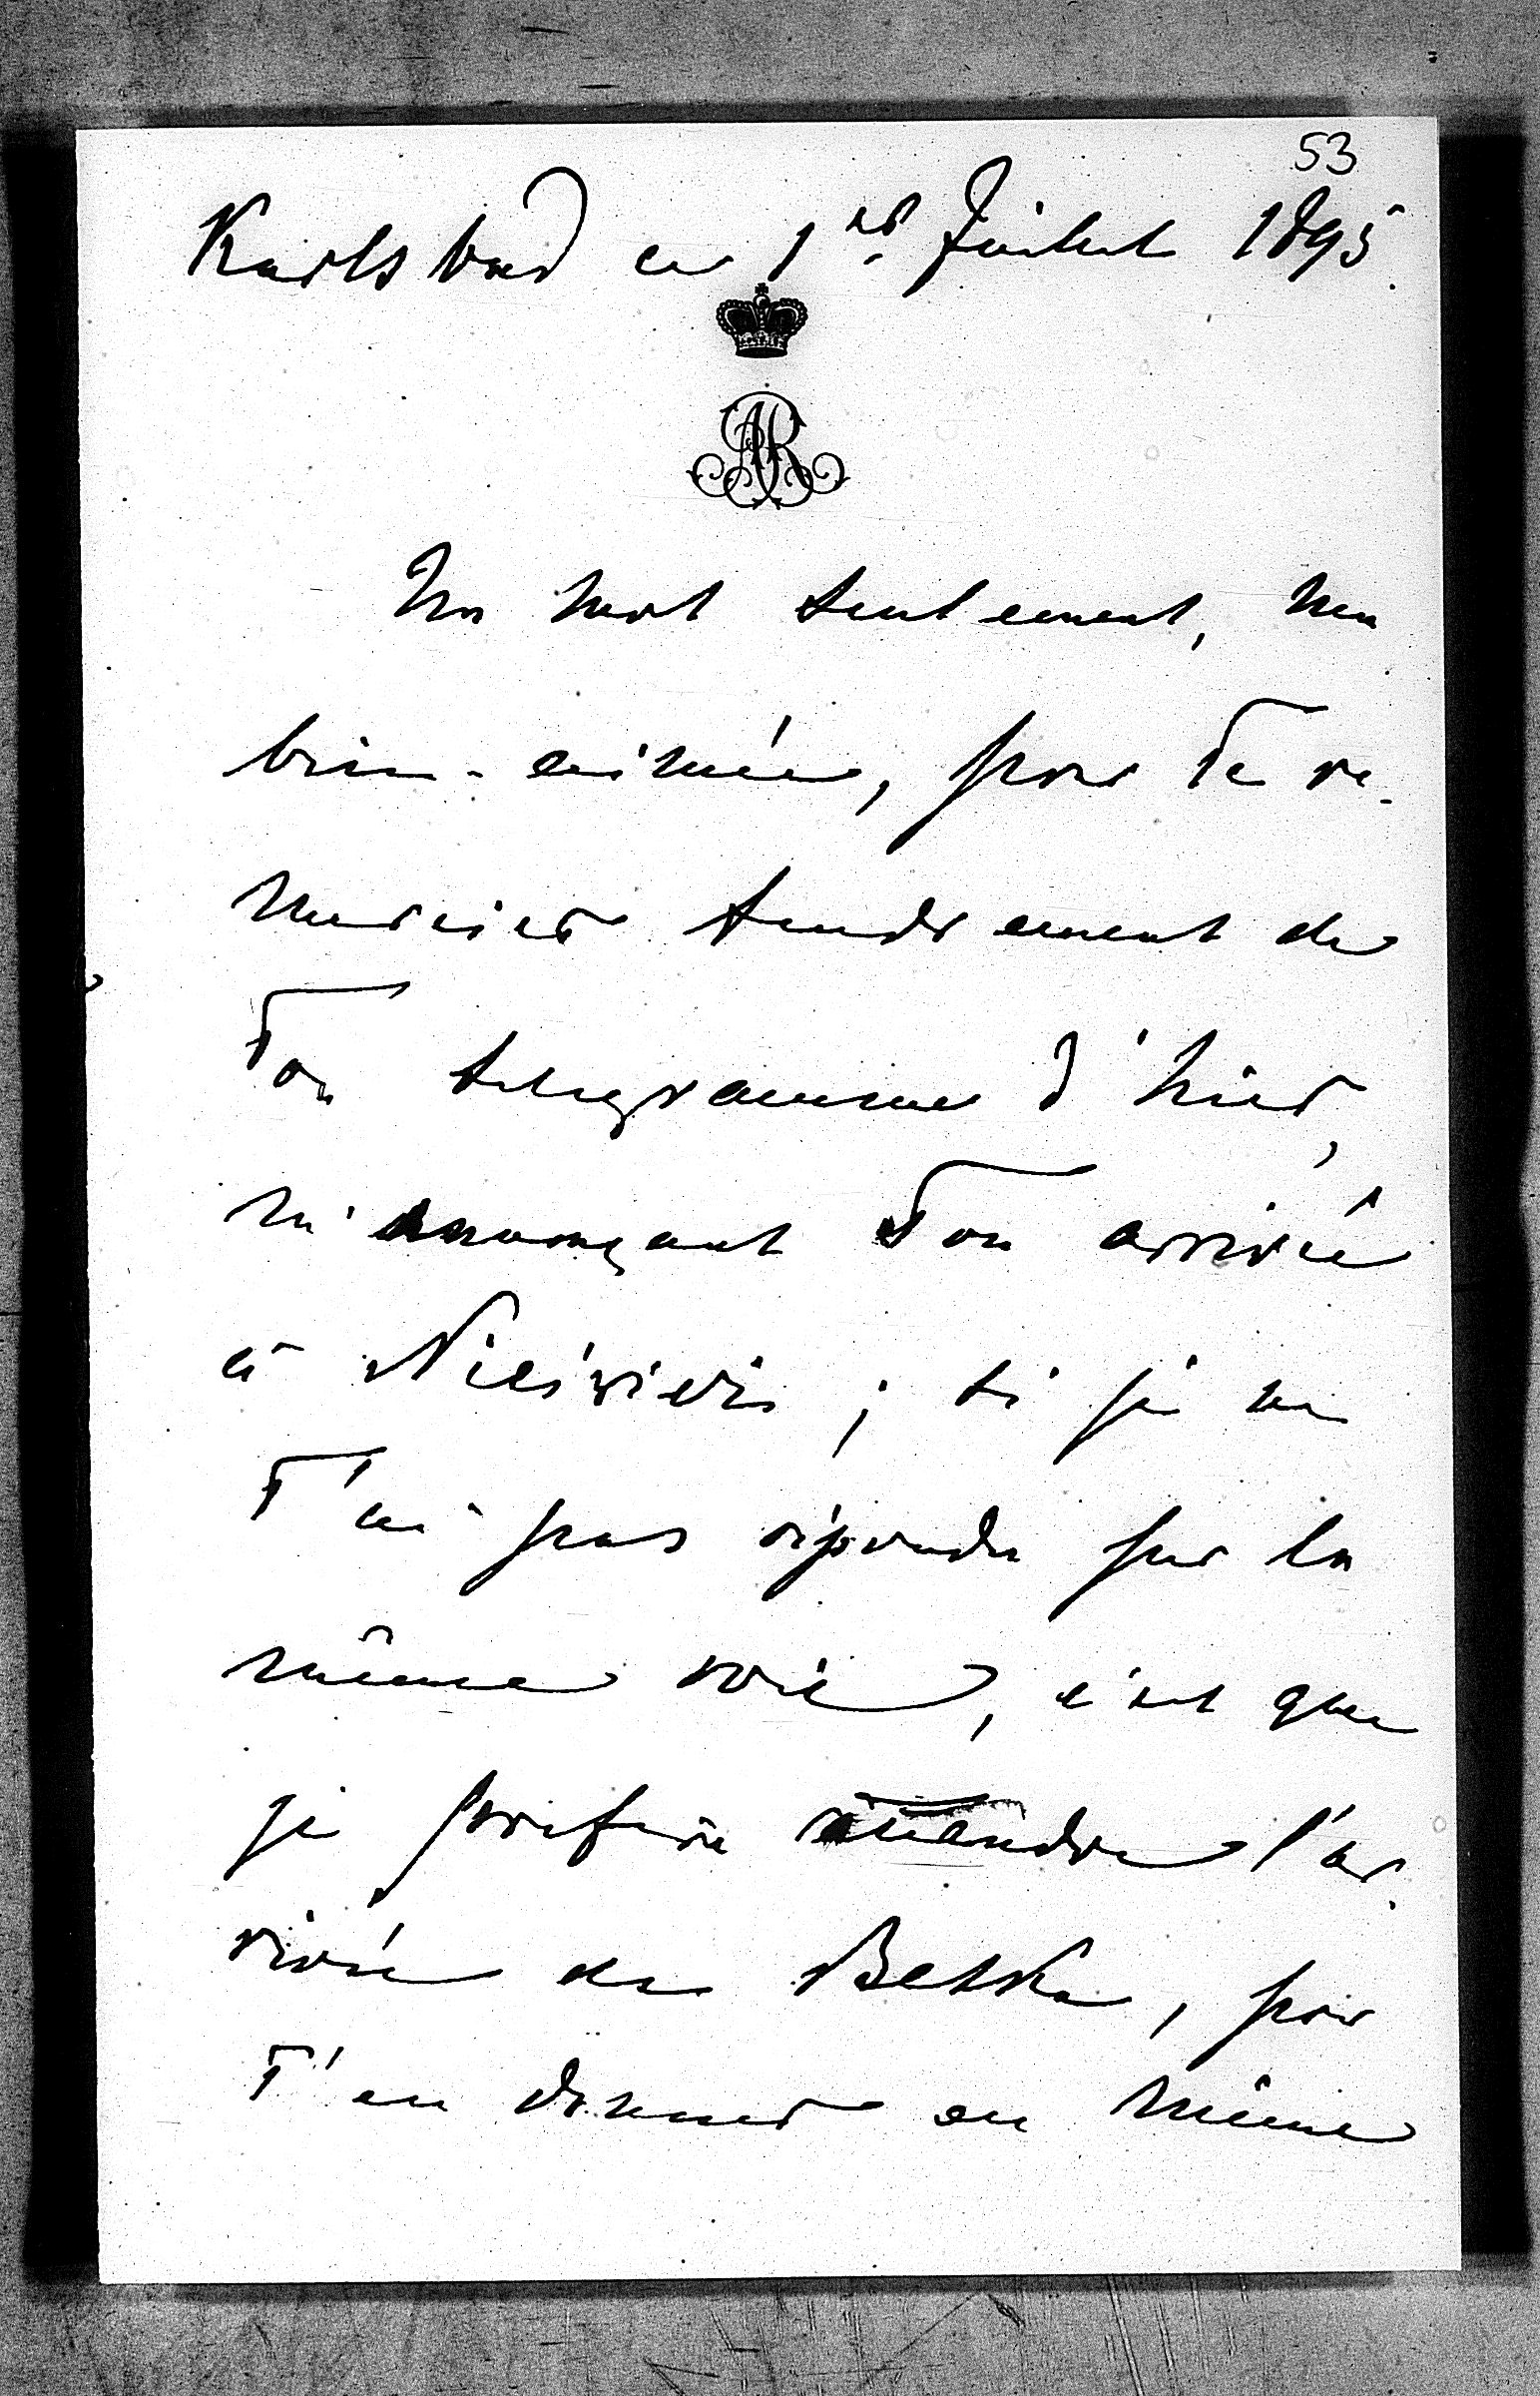 53
Karlsbad ce 1er Juillet 1895.
AR
Un mot seulement, ma
bien-aimée, pour Te re-
mercier tendrement de
Ton telegramme d'hier,
m'annonçant Ton arrivée
à Nieśwież ; si je ne
T'ai pas répondu par la
même voie, c'est que
je prefère attendre l'ar-
rivée de Betka, pour
T'en donner en même